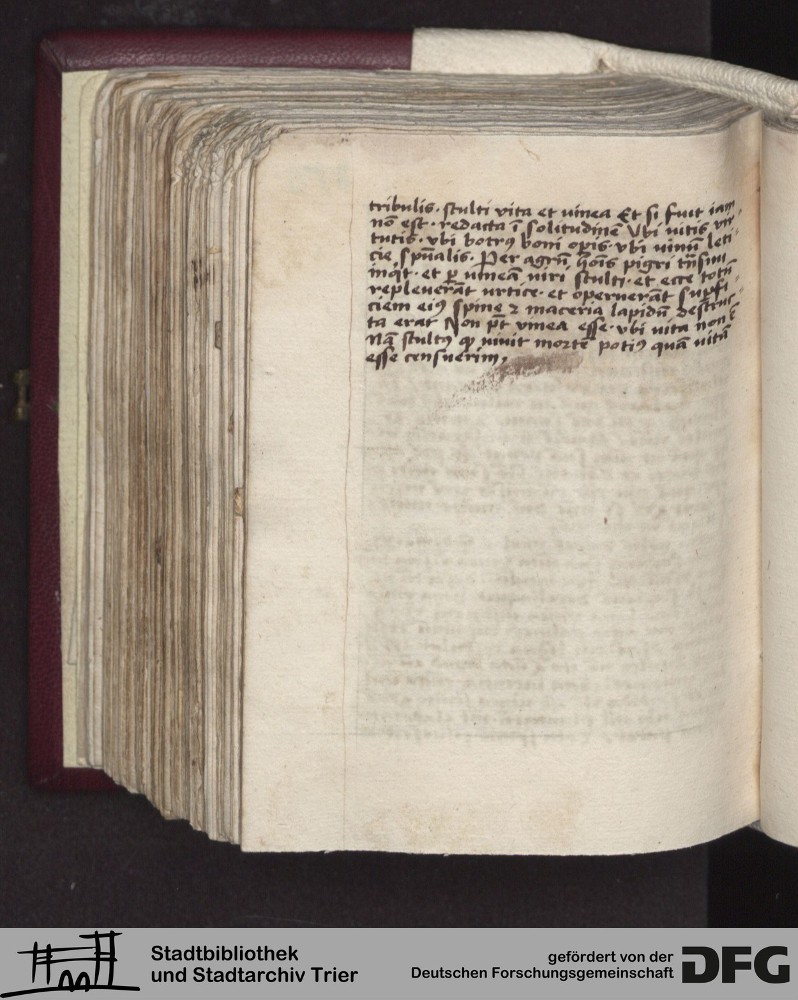 tribulis. stulti vita et uinea Et si fuit iam
nō est. redacta ī solitudinē Vbi uitis vir
tutis. vbi botrꝰ boni opis. vbi uinū leti
cie spūalis. Per agrū hoīs pigri trāsiui
inq̇t. et p uineā uiri stulti. et ecce totū
repleuerāt urtice. et operuerāt supfi
ciem eiꝰ spine ⁊ maceria lapidū destruc
ta erat Non pōt vinea esse. vbi uita non ē
Nā stultꝰ qp uiuit mortē potiꝰ quā uitā
esse censuerim,
Stadtbibliothek
und Stadtarchiv Trier
gefördert von der
Deutschen Forschungsgemeinschaft
DFG